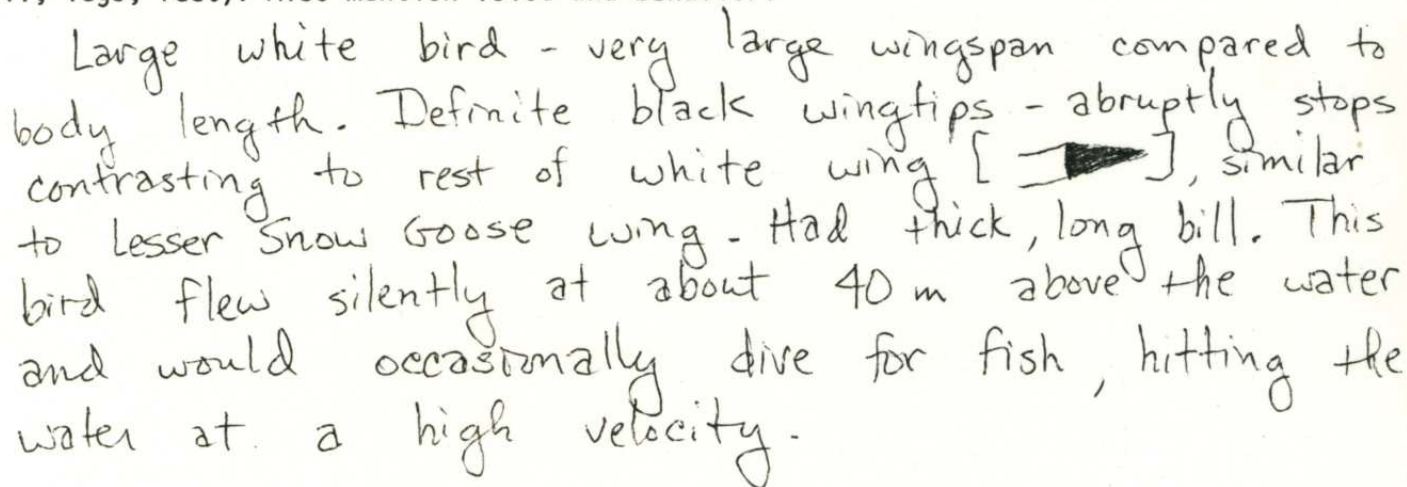 Large white bird - very large wingspan compared to
body length. Definite black wingtips - abruptly stops
contrasting to rest of white wing [ ], similar
to Lesser Snow Goose wing. Had thick, long bill. This
bird flew silently at about 40 m above the water
and would occasionally dive for fish, hitting the
water at a high velocity.